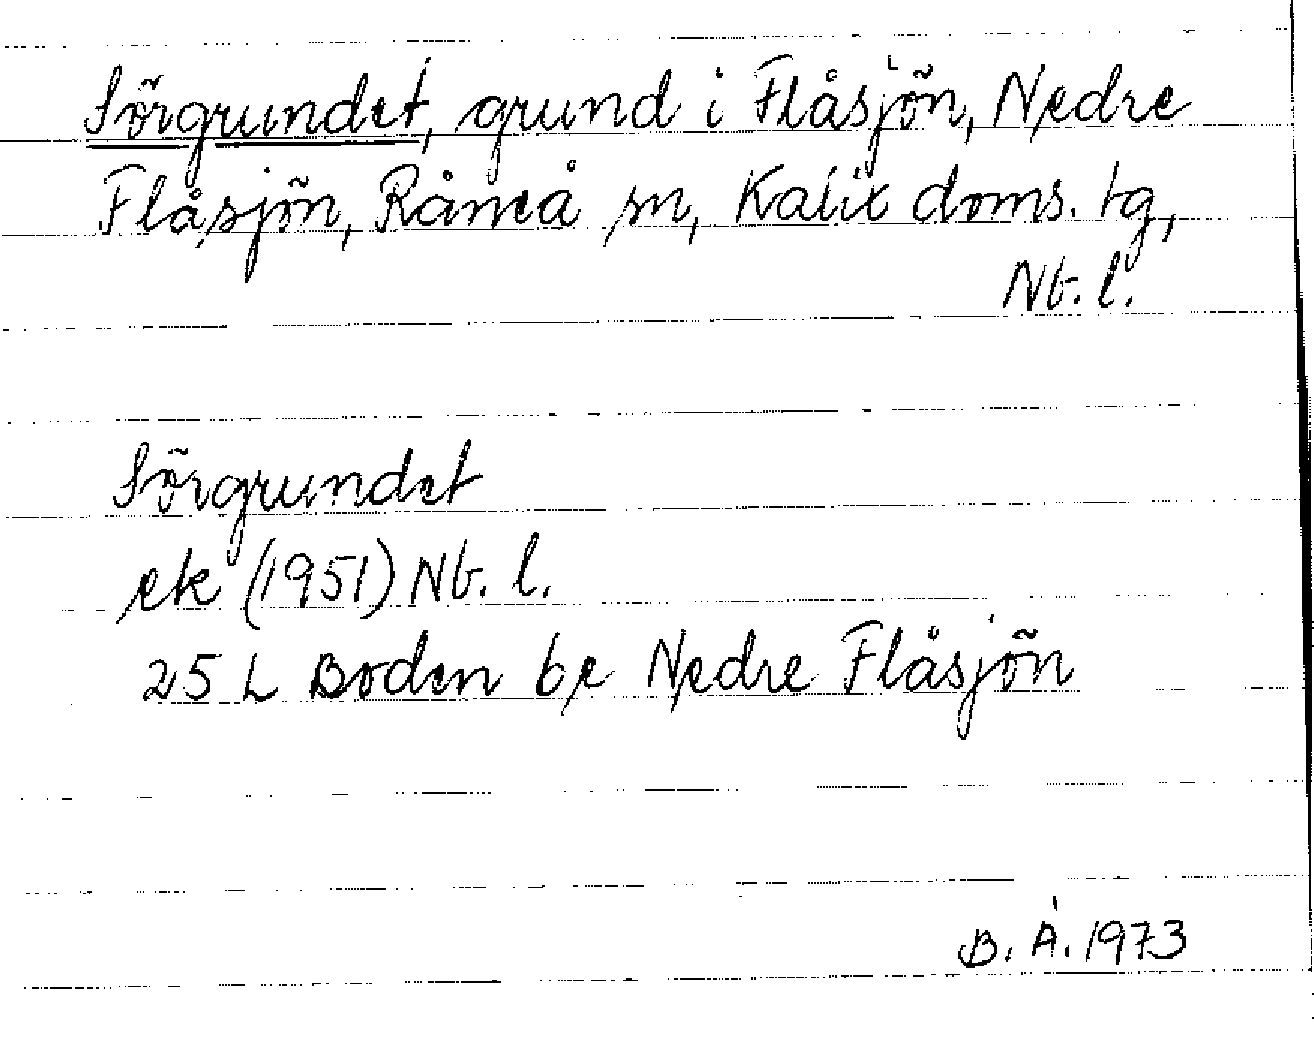 Sörgrundet, grund i Flåsjön, Nedre
Flåsjön, Råneå sn, Kalix doms. tg,
Nb. l.
Sörgrundet
ek (1951) Nb. l.
25 L Boden be Nedre Flåsjön
B. Å. 1973